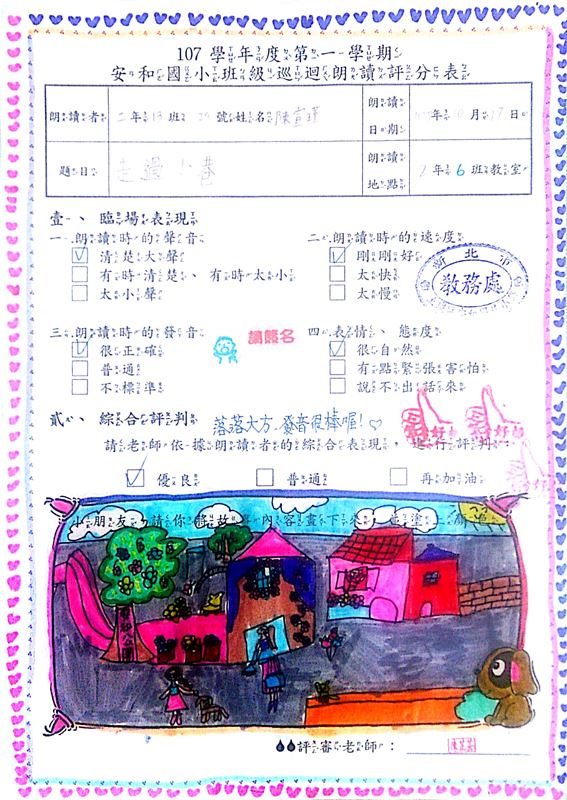 107學年度第一學期
安和國小班級巡迴朗讀評分表
朗讀者 二年13班 號姓名陳宣 朗讀日期 年10月17日
題目 走過小巷 朗讀地點 2年6班教室
壹、臨場表現
一.朗讀時的聲音 二.朗讀時的速度
清楚大聲 剛剛好
有時清楚、有時太小 太快
太小聲 太慢
新北市
教務處
三.朗讀時的發音 請簽名 四.表情、態度
很正確 很自然
普通 有點緊張害怕
不標準 說不出話來
貳、綜合評判 落落大方、發音很棒喔!♡
請老師依據朗讀者的綜合表現,進行評判
優良 普通 再加油
小朋友,請你將故事內容畫下來,並塗上顏色
評審老師: